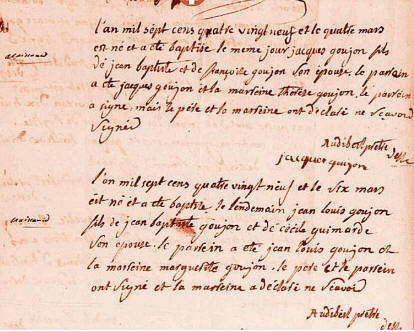 l'an mil sept cens quatre vingt neuf et le quatre mars
est né et a eté baptisé le meme jour jacques goujon fils
de jean baptiste et de françoise goujon son epouse. le parrein
a eté jacques goujon et la marreine therèse goujon. le parrein
a signé, mais le père et la marreine ont declaré ne scavoir
signer
Audibert prêtre
jacques goujon
l'an mil sept cens quatre vingt neuf et le six mars
est né et a eté baptisé le lendemain jean louis goujon
fils de jean baptiste goujon et de cécile guimarde
son epouse. le parrein a eté jean louis goujon et
la marreine marguerite goujon. le père et le parrein
ont signé et la marreine a declaré ne scavoir
Audibert prêtre